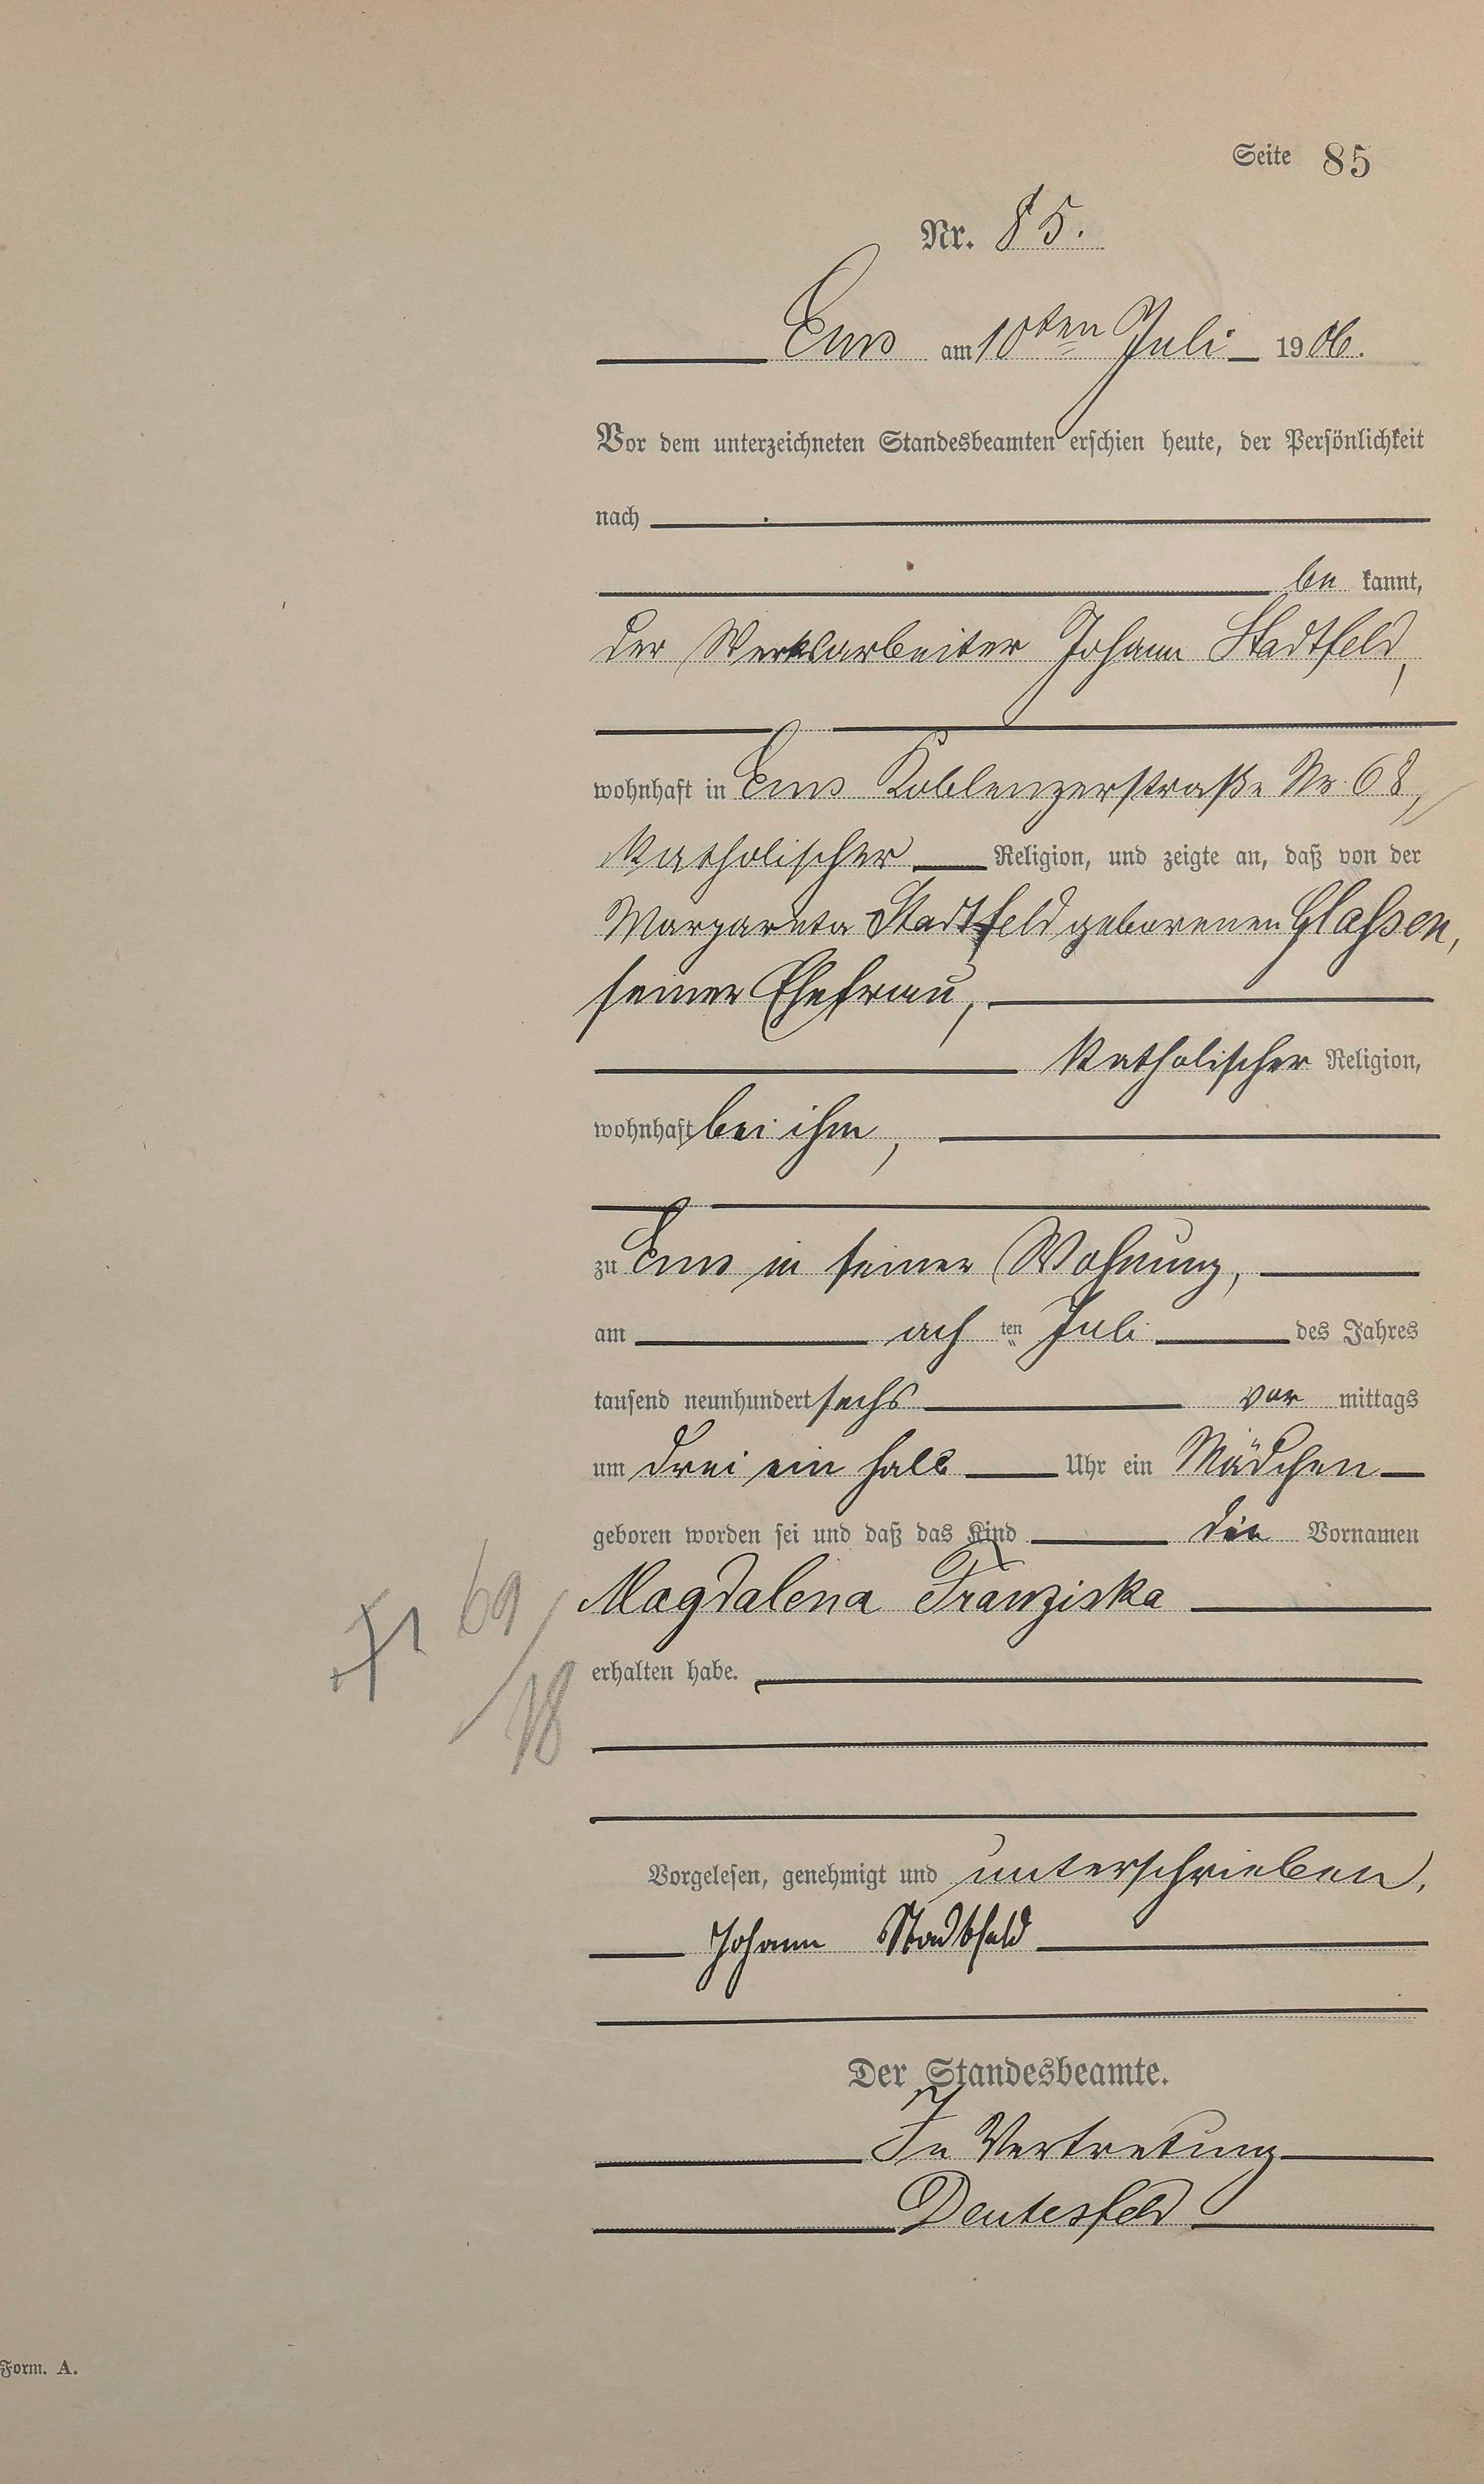 Seite 85
Nr. 85.
Ems am 10ten Juli 1906.
Vor dem unterzeichneten Standesbeamten erschien heute, der Persönlichkeit
nach
be kannt,
der Werksarbeiter Johann Stadtfeld,
wohnhaft in Ems Koblenzerstraße Nr. 68,
katholischer Religion, und zeigte an, daß von der
Margareta Stadtfeld geborenen Glassen,
seiner Ehefrau,
katholischer Religion,
wohnhaft bei ihm,
zu Ems in seiner Wohnung,
am ach ten Juli des Jahres
tausend neunhundert sechs vor mittags
um drei ein halb Uhr ein Mädchen
geboren worden sei und daß das Kind die Vornamen
Magdalena Franziska
erhalten habe.
69/18
Vorgelesen, genehmigt und unterschrieben.
Johann Stadtfeld
Der Standesbeamte.
In Vertretung
Deutesfeld
Form. A.